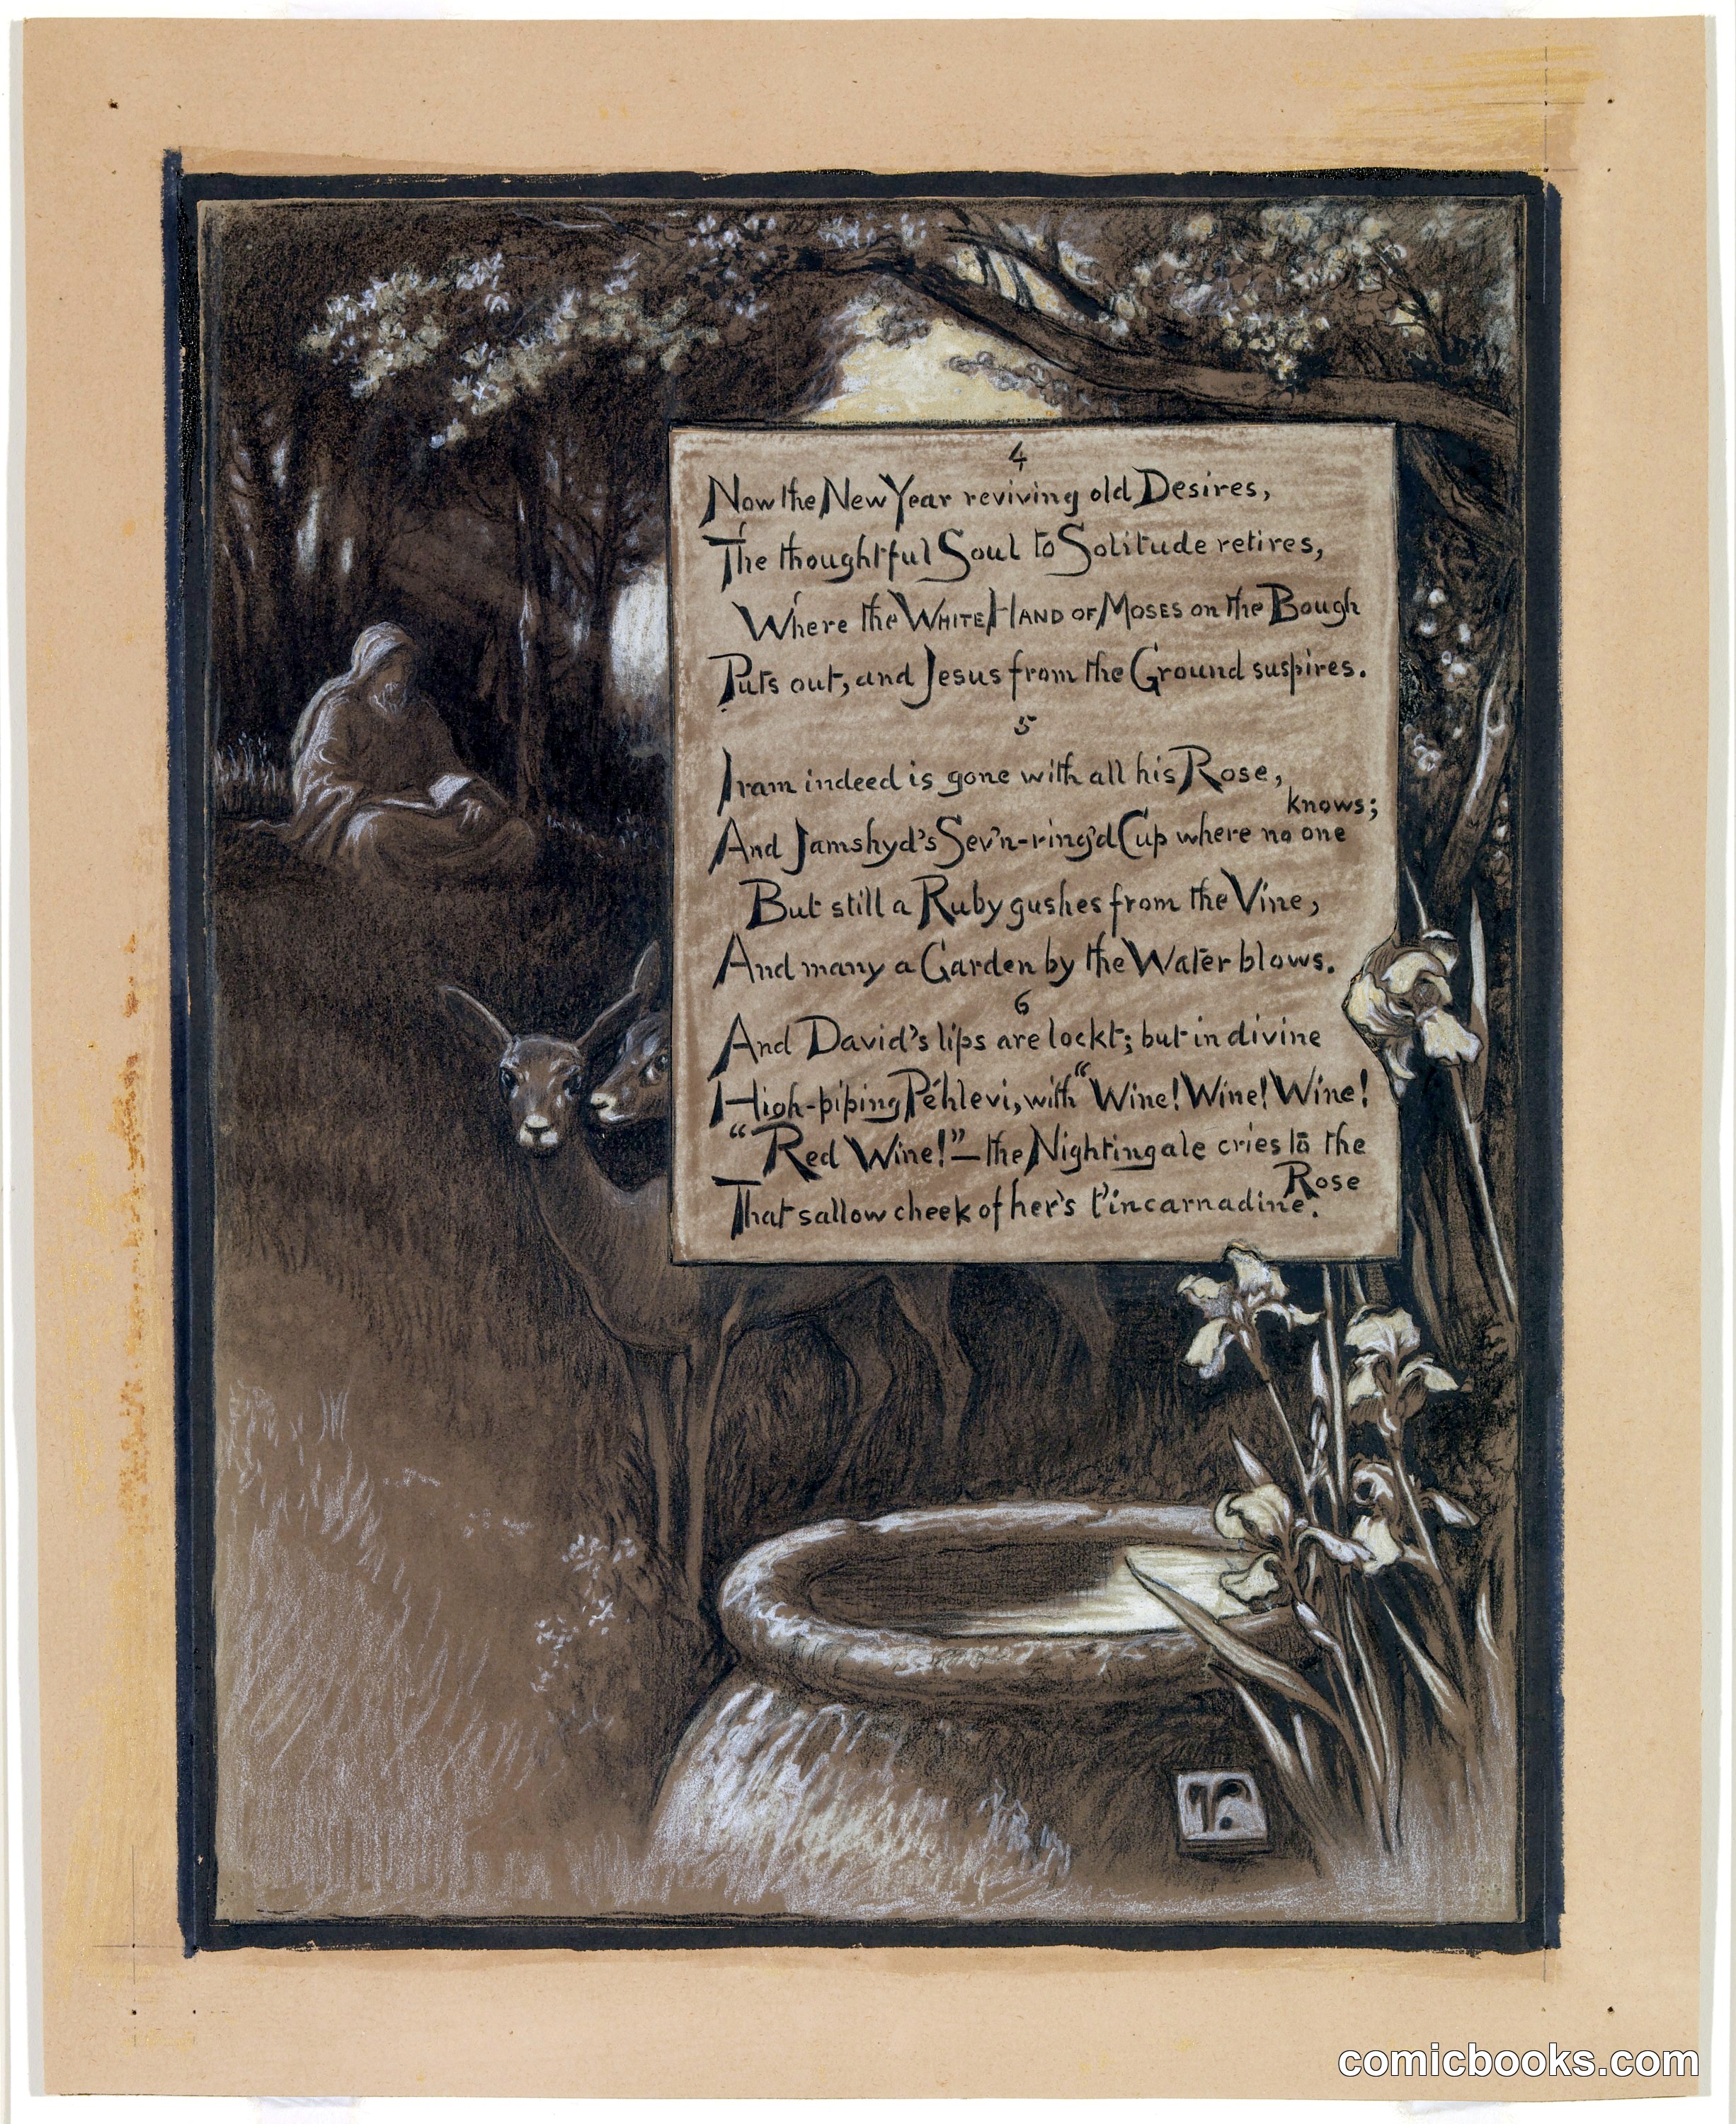 4
Now the New Year reviving old Desires,
The thoughtful Soul to Solitude retires,
Where the WHITE HAND OF MOSES on the Bough
Puts out, and Jesus from the Ground suspires.
5
Iram indeed is gone with all his Rose,
And Jamshyd's Sev'n-ring'd Cup where no one knows;
But still a Ruby gushes from the Vine,
And many a Garden by the Water blows.
6
And David's lips are lockt; but in divine
High-piping Péhlevi, with "Wine! Wine! Wine!
"Red Wine!"—the Nightingale cries to the Rose
That sallow cheek of her's t'incarnadine.
comicbooks.com